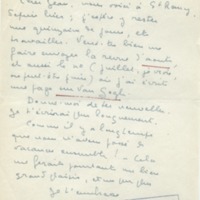 cher Jean, nous voici à St Rémy.
Depuis hier, j'espère y rester
une quinzaine de jours, et
travailler. Veux-tu bien me
faire envoyer la revue d'août,
et aussi le n° (juillet, je crois,
ou peut-être juin) où j'ai écrit
une page sur Van Gogh.
Donne-moi de tes nouvelles.
Je t'écrirai plus longuement.
Comme il y a longtemps
que nous n'avons passé de
vacances ensemble ! - Cela
me ferait pourtant un bien
grand plaisir, et
Je t'embrasse